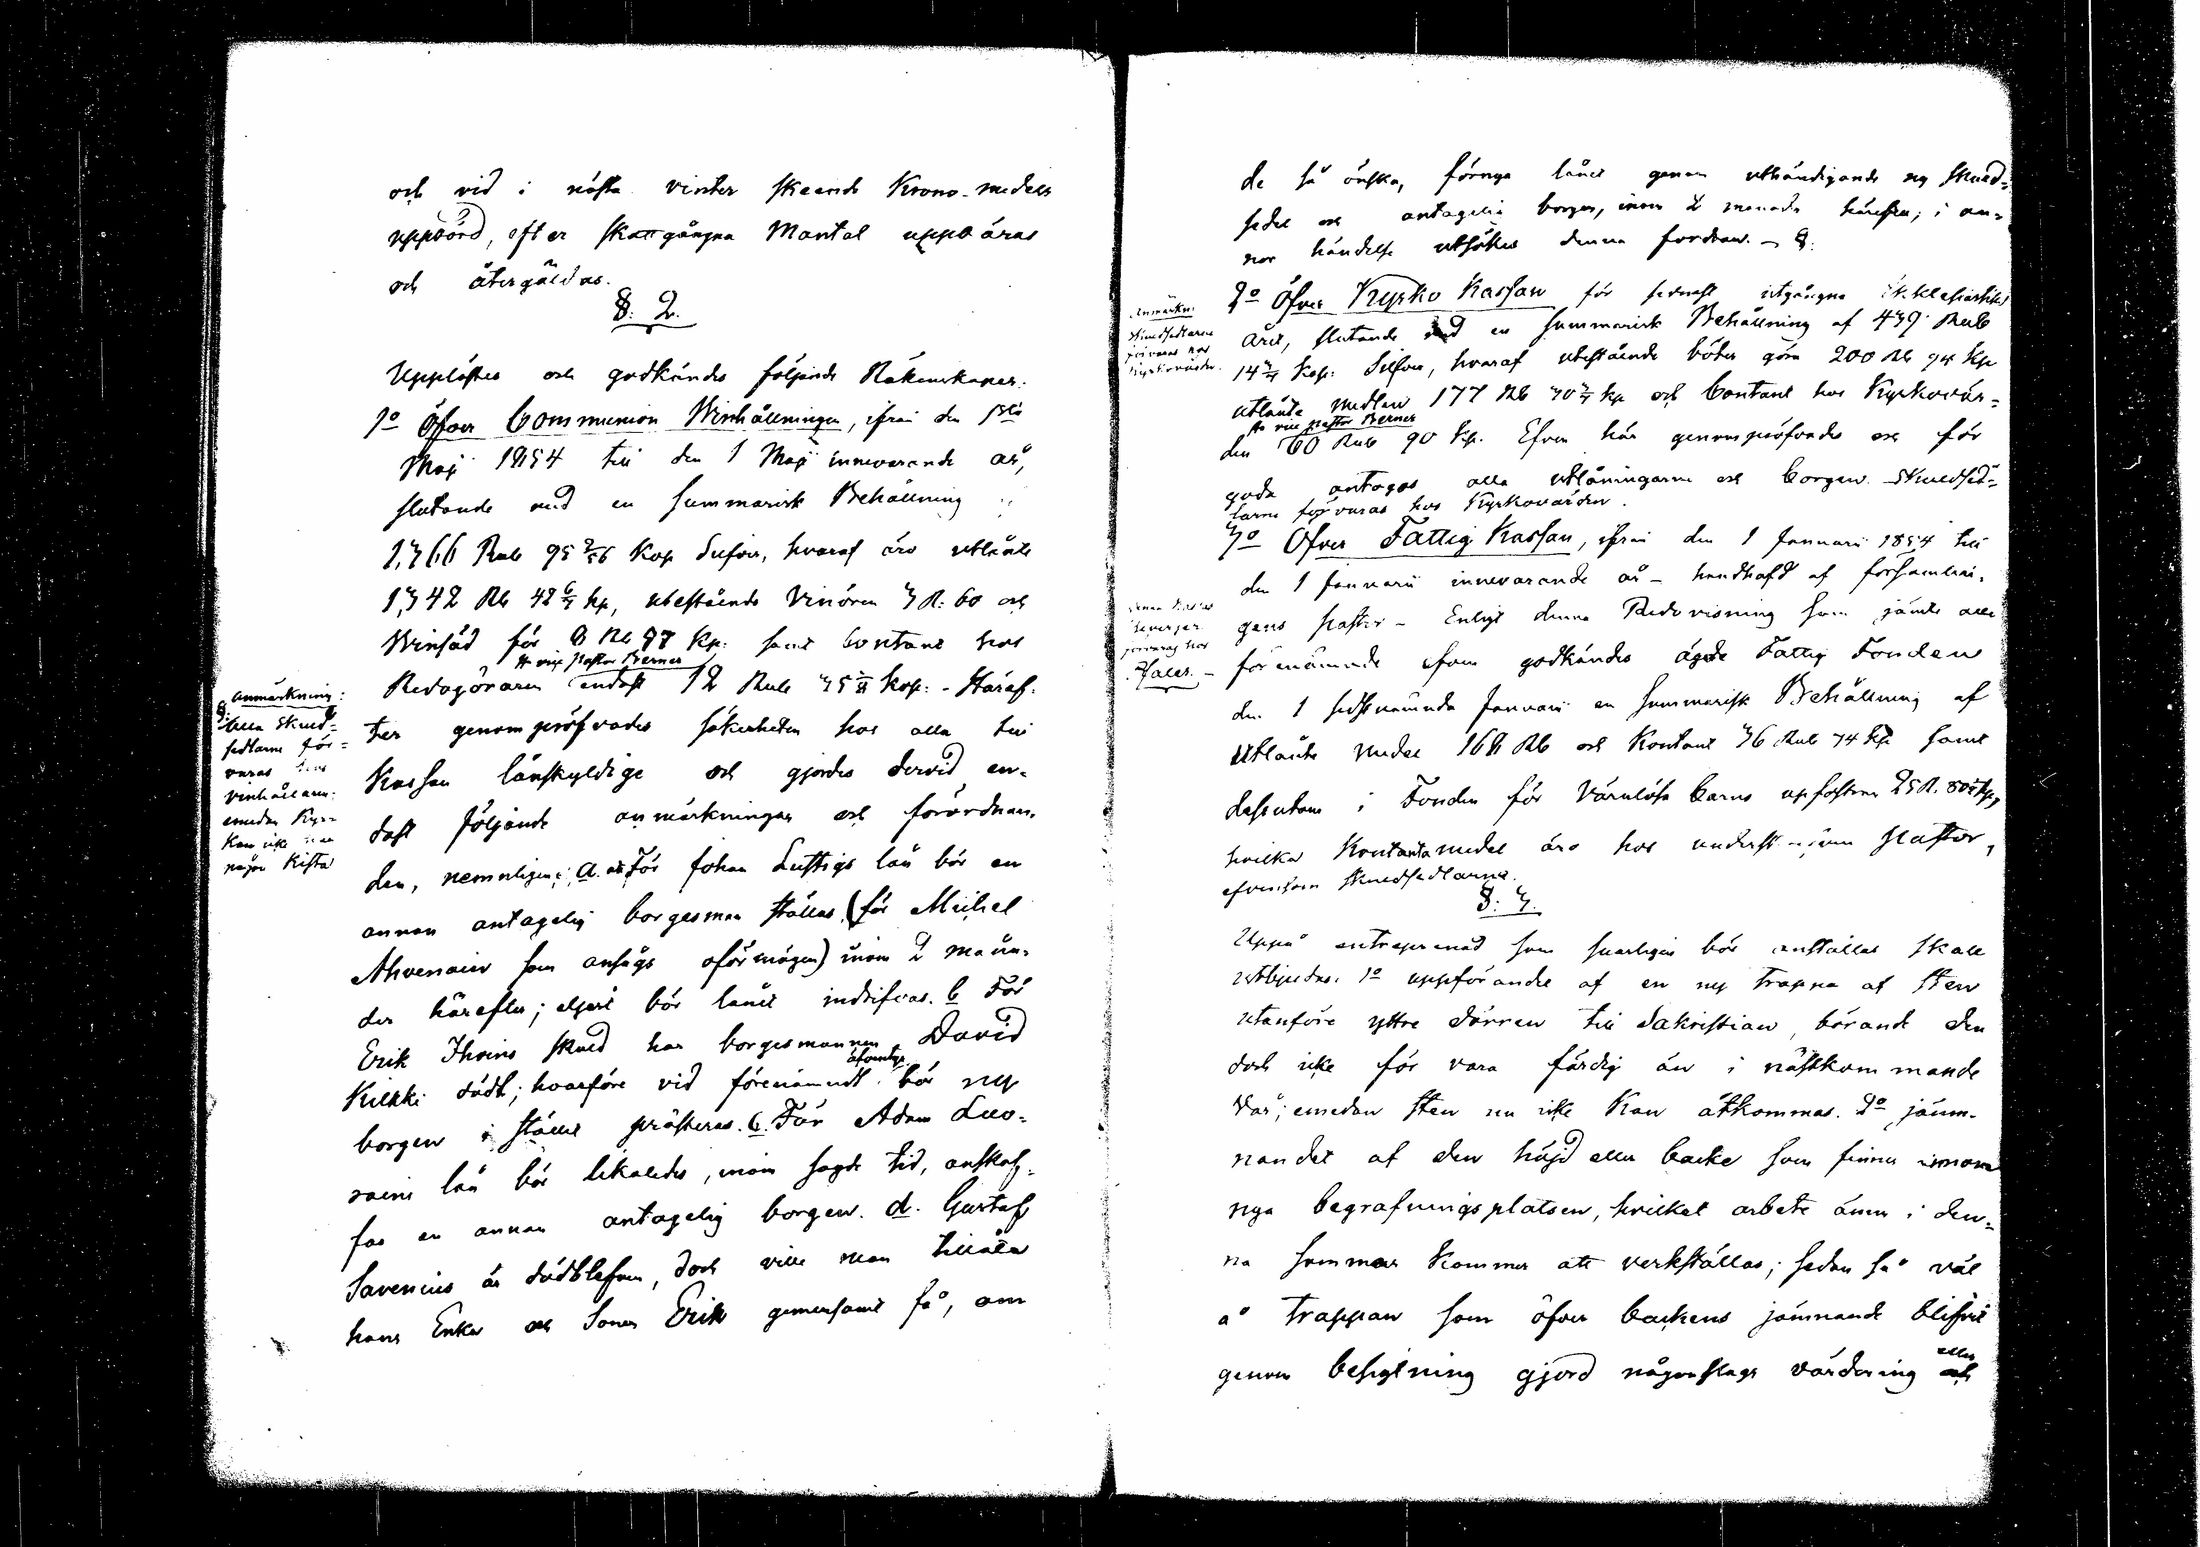 och vid i nästa vinter skeende Krono-medels
uppbörd, efter skattgångna Mantal uppbäras
och återgäldas.
§. 2.
Upplästes och godkändes följande Räkenskaper:
1o Öfver Communion Winhållningen, ifrån den 1sta
Maji 1854 till den 1 Maji innevarande år,
slutande med en summarisk Behållning
1,366 Rub 95 Kop Silfver, hvaraf äro utlånte
1,342 Rb 42 6/7 kp, utestående Vinören 3 R: 60 och
Winsäd för 8 Rb 97 Kp: samt Contant hos
Redogöraren vice Pastor Berner endast 12 Rub 35 kop: - Häref-
ter genompröfvades säkerheten hos alla till
Kassan lånskyldige och gjordes dervid en-
dast följande anmärkningar och förordnan-
den, nemnligen: a. För Johan Lustigs lån bör en
annan antagelig borgesman ställas (för Michel
Ahvenain som ansågs oförmögen) inom 2 måna-
der härefter; eljest bör lånet indrifvas. b För
Erik Ihoins skuld har borgesmannen David
Kilkki dödt; hvarföre vid förenämndt äfventyr bör ny
borgen i stället presteras. c. För Adam Luo-
rains lån bör likaledes, inom sagde tid, anskaf-
fas en annan antagelig borgen. d. Gustaf
Savenius är död blefven, dock ville man tillåta
hans Enka och Sonen Erik gemensamt få, om
Anmärkning:
Alla Skuld-
sedlarne för-
varas hos
vinhållaren:
emedan Kyr-
kan icke har
någon Kista
de så önska, förnya lånet genom uthändigande ny skuld-
sedel och antagelig borgen, inom 2 månader härefter; i an-
nor händelse utsökes denna fordran. - §.
2o Öfver Kyrko Kassan för sednast utgångne Ekklesiastik
året, slutande med en summarisk Behållning af 439 Rub
14 2/7 Kop: Silfver, hvaraf utestående böter göra 200 Rb 94 Kp
utlånte medlen 177 Rb 30 2/7 kp och Contant hos Kyrkovär-
den vice pastor Berner 60 Rub 90 kp. Efven här genompröfvades och för
goda antogos alla utlåningarne och borgen. Skuldsed-
larne förvaras hos Kyrkovärden.
3o Öfver Fattig Kassan, ifrån den 1 Januari 1854 till
den 1 Januarii innevarande år - handhafd af församlin-
gens pastor - Enligt denna Redovisning som jämte alla
förenämnde som godkändes ägde Fattig Fonden
den 1 sidstnämnda Januari en summarisk Behållning af
utlånte medel 168 Rb och Kontant 36 Rub 34 Kp samt
dessutom i Fonden för Värnlösa barns uppfostran 25 R. 80 Kp,
hvilka Kontanta medel äro hos pastor,
efvensom skuldsedlarna.
§: 3.
Uppå entreprenad som snarligen bör anställas skall
utbjudas: 1o uppförandet af en ny trappa af sten
utanföre yttre dörren till Sakristian, börande den
dock icke för vara färdig än i nästkommande
Vår; emedan sten nu icke Kan åtkommas. 2o jäm-
nandet af den höjd eller backe som finnes innom
nya begrafningsplatsen, hvilket arbete ännu i den-
na sommar kommer att verkställas; sedan så väl
å trappan som öfver backens jämnande blifvit
genom besigtning gjord någonslags värdering eller
Anmärkn:
Skuldsedlarne
förvaras hos
Kyrkovärden.
förvaras hos
Pastor.